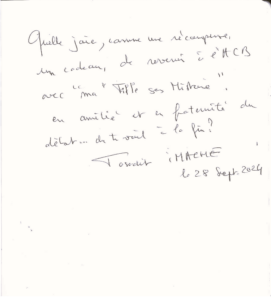 Quelle joie, comme une récompense,
un cadeau, de revenir à l'ACB
avec "ma" "Tifte ses Histoire".
en amitié et en fraternité du
début... à la fin?
IMACHE
le 28 Sept. 2024